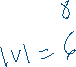 8
|v| = 6